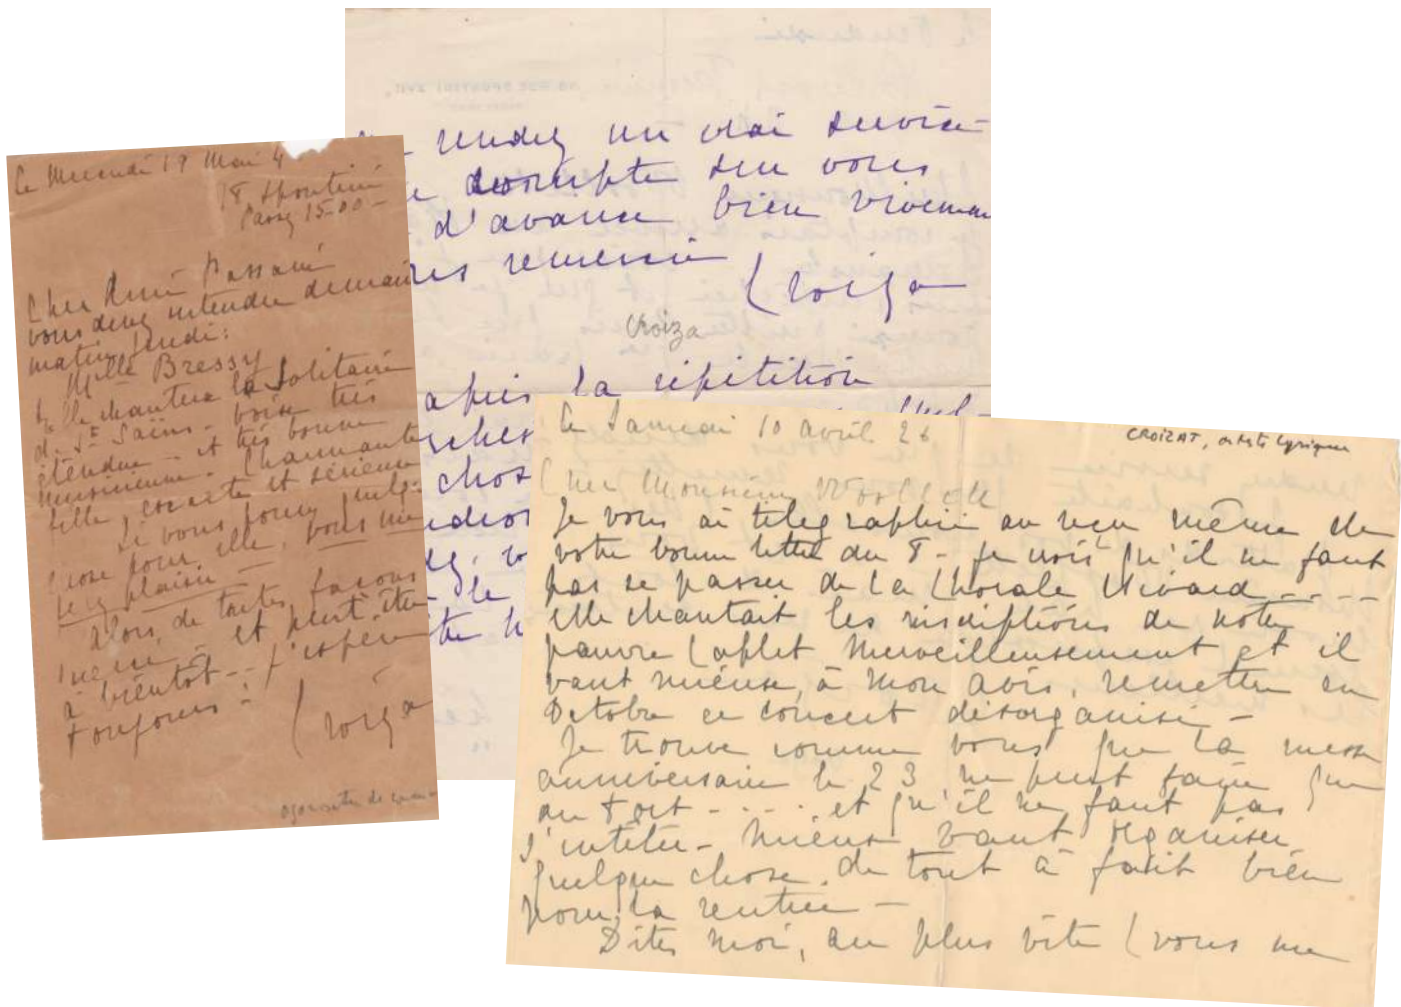 Le Mercredi 19 Mai 4
18 Spontini
Passy 15-00 -
Cher René Passani
vous devez entendre demain
matin jeudi :
Mlle Bressy
Elle chantera la Solitaire
de St Saëns - voix très
étendue - et très bonne
musicienne. Charmante
fille, exacte et sérieuse
Si vous pouvez quelque
chose pour elle, vous me
ferez plaisir -
Alors, de toutes façons
merci - et peut être
à bientôt - J'espère
toujours !
Croiza
RUE SPONTINI XVIe
rendez un vrai service
compte sur vous
d'avance bien vivement
remercie
Croiza
Croiza
après la répétition
chos
Le Samedi 10 avril 26
CROIZAT, artiste lyrique
Cher Monsieur
Je vous ai télégraphié au reçu même de
votre bonne lettre du 8 - Je crois qu'il ne faut
pas se passer de la Chorale Nivard - - - -
elle chantait les inscriptions de notre
pauvre Caplet merveilleusement et il
vaut mieux, à mon avis, remettre en
Octobre ce concert désorganisé -
Je trouve comme vous que la messe
anniversaire le 23 ne peut faire que
du tort - - . . . et qu'il ne faut pas
s'entêter - Mieux vaut organiser
quelque chose de tout à fait bien
pour la rentrée -
Dites moi, au plus vite (vous me